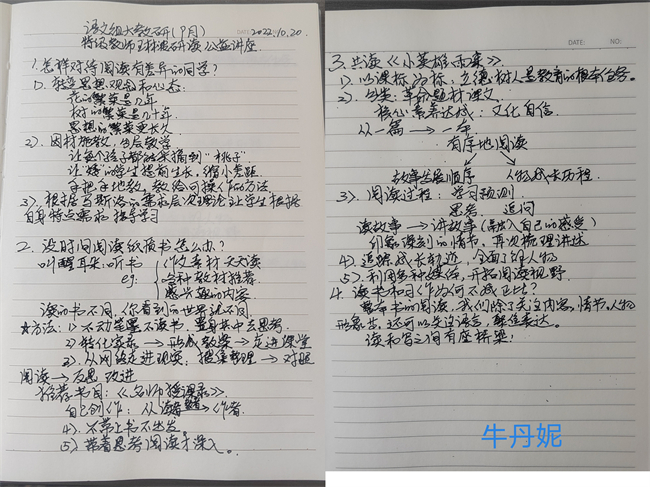 语文组大教研(9月) 2022.10.20.
特级教师 研读公益讲座
1. 怎样对待阅读有差异的同学?
1). 转变思想观念和心态:
花的繁荣是几年
树的繁荣是几十年
思想的繁荣更长久
2). 因材施教, 当层教学
让每个孩子都能来摘到“桃子”
让“矮”的学生提前生长, 缩小差距
手把手地教, 教给可操作的方法.
3). 根据马斯洛的需求层次理论让学生根据
自身特点需求 指导学习
2. 没时间阅读纸质书怎么办?
叫醒耳朵: 听书 作文素材天天读
eg: 各种教材推荐.
感兴趣的内容.
读的书不同, 你看到的世界就不同.
★方法: 1). 不动笔墨不读书, 置身其中去思考.
2) 转化实录 → 形成教案 → 走进课堂
3). 从网络走进现实, 搜集整理 → 对照
阅读 → 反思 改进
推荐书目: 《名师授课录》.
自己创作: 从读者 → 作者.
4). 不带上书不出发.
5). 带着思考阅读才深入.
DATE: NO:
3. 共读《小英雄雨来》
1). 以课标为标, 立德树人是教育的根本任务.
2). 归类: 革命题材课文
核心素养达成: 文化自信.
从一篇 → 一本
有序地阅读
故事发展顺序 人物成长历程.
3). 阅读过程: 学习预测
思考. 追问
读故事 → 讲故事 (融入自己的感受)
印象深刻的情节, 再次梳理讲述
4). 追踪成长轨迹, 全面了解人物
5). 利用各种媒体, 开拓阅读视野.
4. 读书和习作为何不成正比?
整本书的阅读, 我们除了关注内容、情节、人物
形象等, 还可以关注语言, 聚焦表达.
读和写之间有座桥梁!
牛丹妮